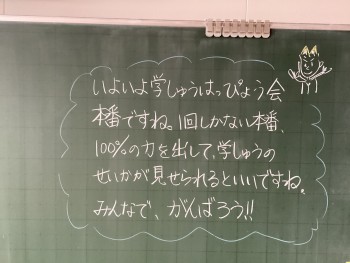 いよいよ学しゅうはっぴょう会
本番ですね。1回しかない本番、
100%の力を出して、学しゅうの
せいかが見せられるといいですね。
みんなで、がんばろう!!